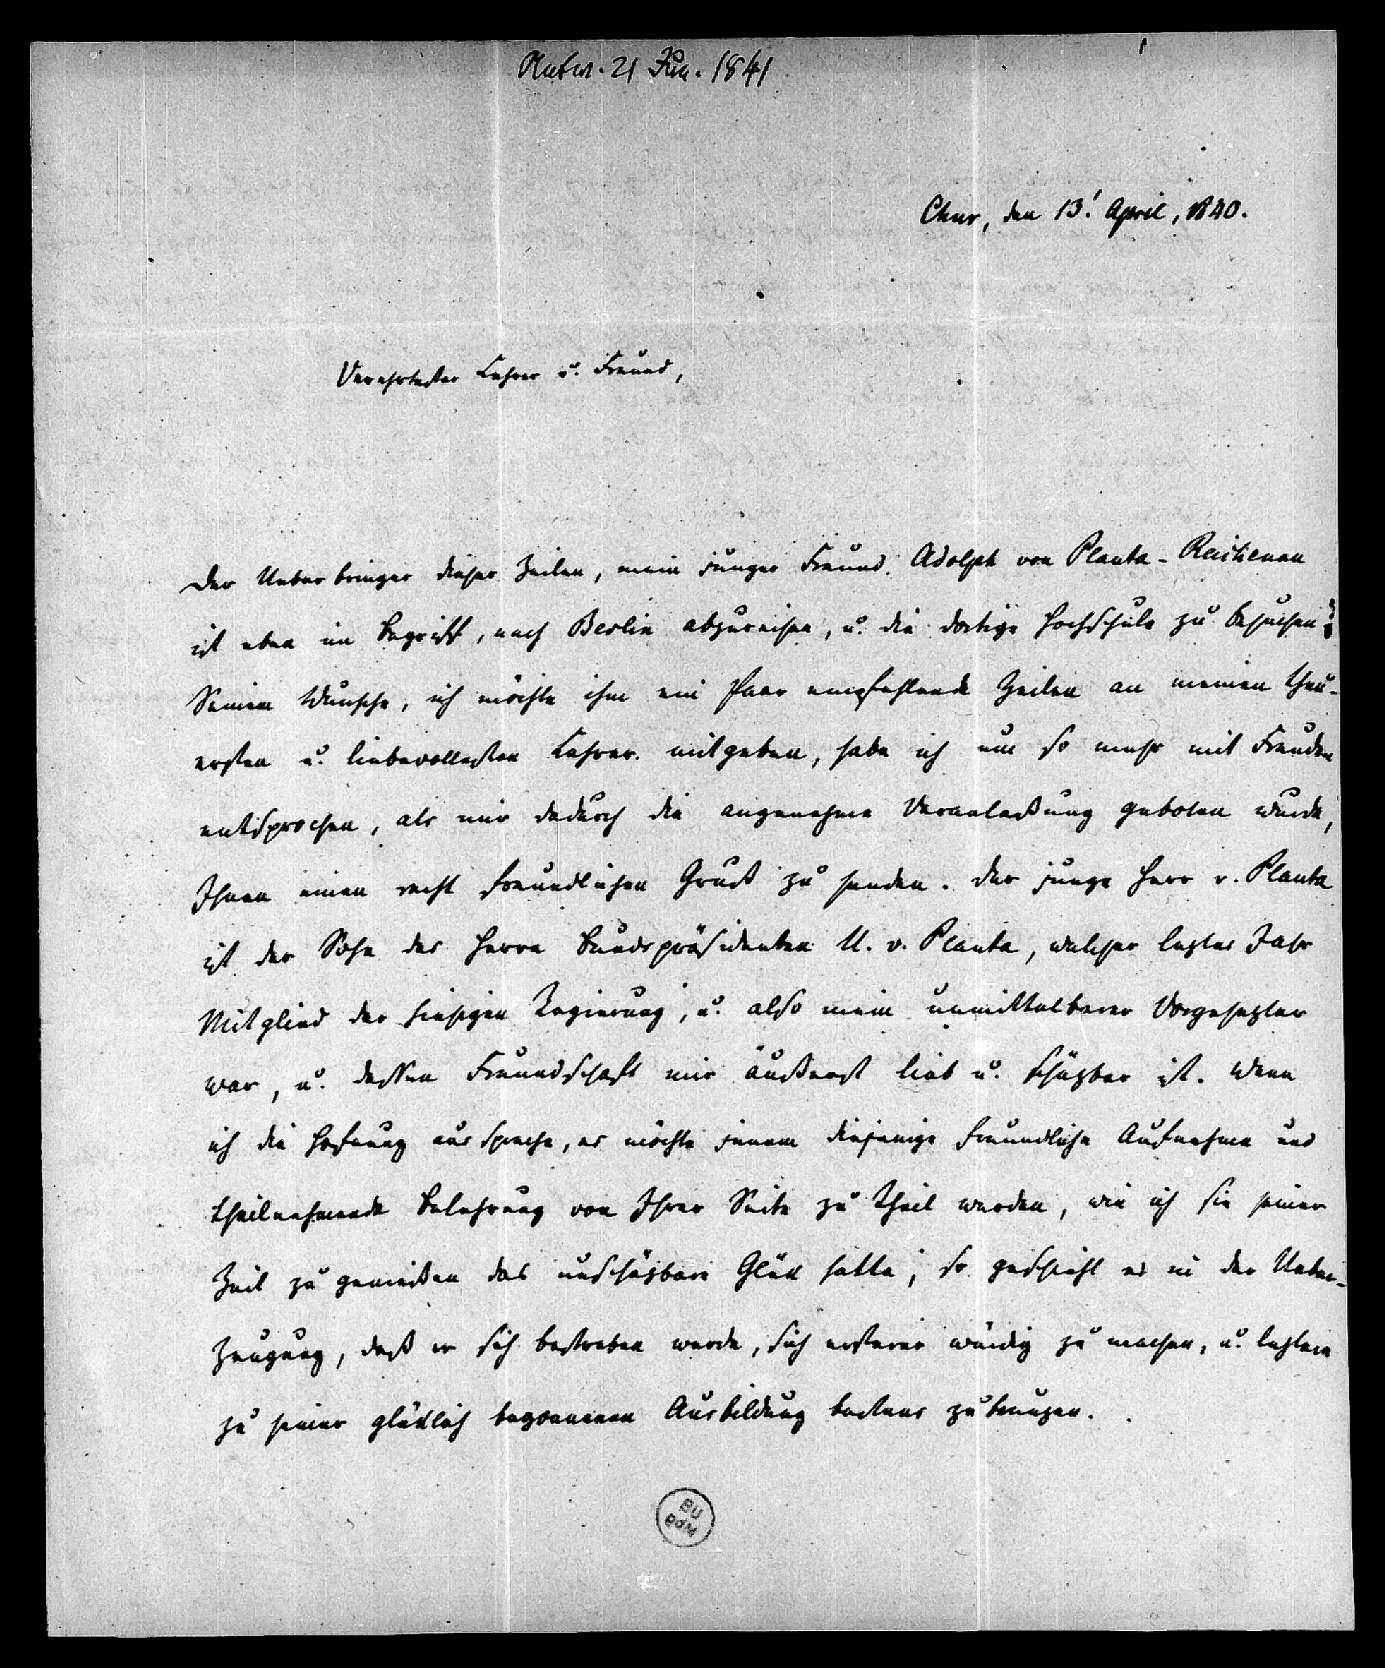 Antw. 21 Jun. 1841
1
Chur, den 13! April, 1840.
Verehrtester Lehrer u. Freund,
Der Ueberbringer dieser Zeilen, mein junger Freund, Adolph von Planta-Reichenau
ist eben im Begriff, nach Berlin abzureisen, u. die dortige Hochschule zu besuchen.
Seinem Wunsche, ich möchte ihm ein Paar empfehlende Zeilen an meinen theu-
ersten u. liebevollesten Lehrer mitgeben, habe ich um so mehr mit Freuden
entsprochen, als mir dadurch die angenehme Veranlaßung geboten wurde,
Ihnen einen recht freundlichen Gruß zu senden. Der junge Herr v. Planta
ist der Sohn des Herrn Bundspräsidenten U. v. Planta, welcher leztes Jahr
Mitglied der hiesigen Regierung, u. also mein unmittelbarer Vorgesezter
war, u. dessen Freundschaft mir äußerst lieb u. schäzbar ist. Wenn
ich die Hofnung ausspreche, es möchte jenem diejenige freundliche Aufnahme und
theilnehmende Belehrung von Ihrer Seite zu Theil werden, wie ich sie seiner
Zeit zu genießen das unschäzbare Glük hatte; so geschieht es in der Ueber-
zeugung, daß er sich bestreben werde, sich ersterer würdig zu machen, u. leztere
zu seiner glüklich begonnenen Ausbildung bestens zu benuzen.
BU